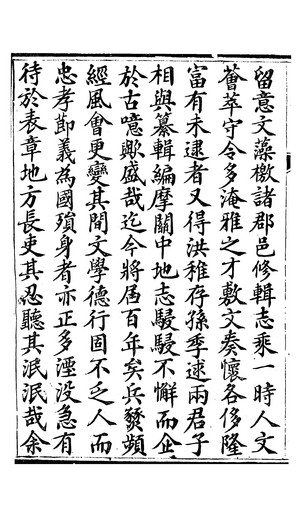 留意文藻檄諸郡邑修輯志乘一時人文
薈萃守令多淹雅之才敷文奏懷各侈隆
富有未逮者又得洪稚存孫季逑兩君子
相與纂輯編摩關中地志駸駸不懈而企
於古噫歟盛哉迄今將屆百年矣兵燹頻
經風會更變其間文學德行固不乏人而
忠孝節義為國殞身者亦正多湮没急有
待於表章地方長吏其忍聽其泯泯哉余